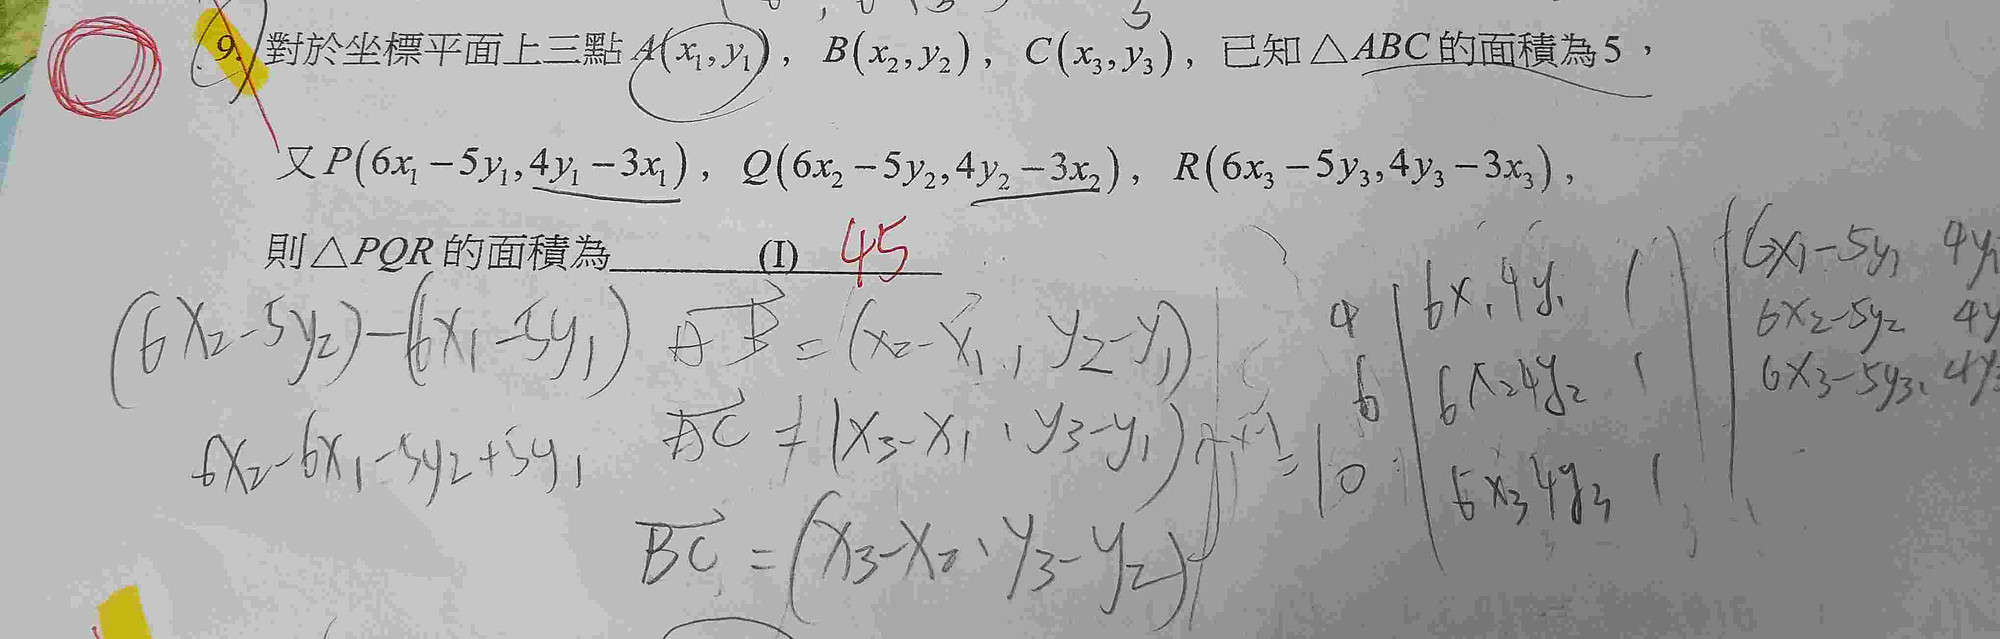 9. 對於坐標平面上三點 A(x₁, y₁), B(x₂, y₂), C(x₃, y₃), 已知 △ABC 的面積為 5，
又 P(6x₁ − 5y₁, 4y₁ − 3x₁), Q(6x₂ − 5y₂, 4y₂ − 3x₂), R(6x₃ − 5y₃, 4y₃ − 3x₃)，
則 △PQR 的面積為 (I) 45
(6x₂ − 5y₂) − (6x₁ − 5y₁)
6x₂ − 6x₁ − 5y₂ + 5y₁
AB = (x₂ − x₁, y₂ − y₁)
AC = (x₃ − x₁, y₃ − y₁)
BC = (x₃ − x₂, y₃ − y₂)
= 10
4
6
6x₁ 4y₁ 1
6x₂ 4y₂ 1
6x₃ 4y₃ 1
6x₁ − 5y₁ 4y₁
6x₂ − 5y₂ 4y
6x₃ − 5y₃ 4y₃